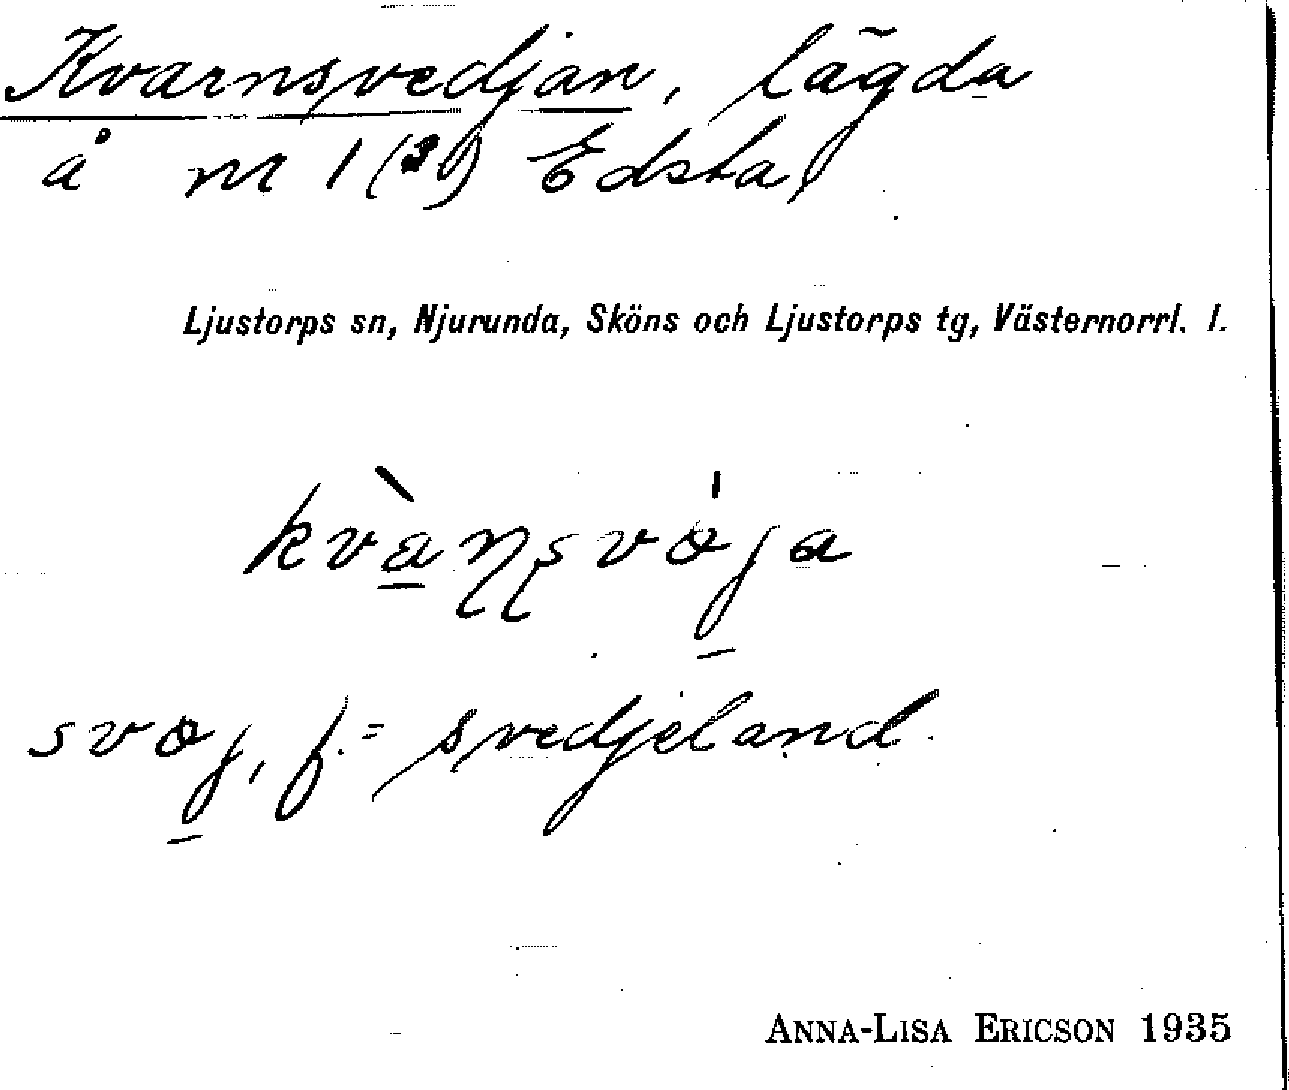 Kvarnsvedjan, lägda
å nr 1 (3) Edsta
Ljustorps sn, Njurunda, Sköns och Ljustorps tg, Västernorrl. l.
kvàṇṣvòja
svoj, f. = svedjeland.
ANNA-LISA ERICSON 1935